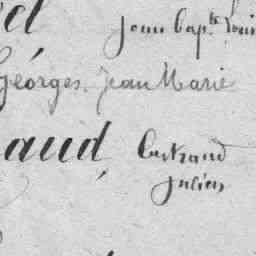 Jean Bapte Louis
Géorges, Jean Marie
aud, Bertrand
Julien